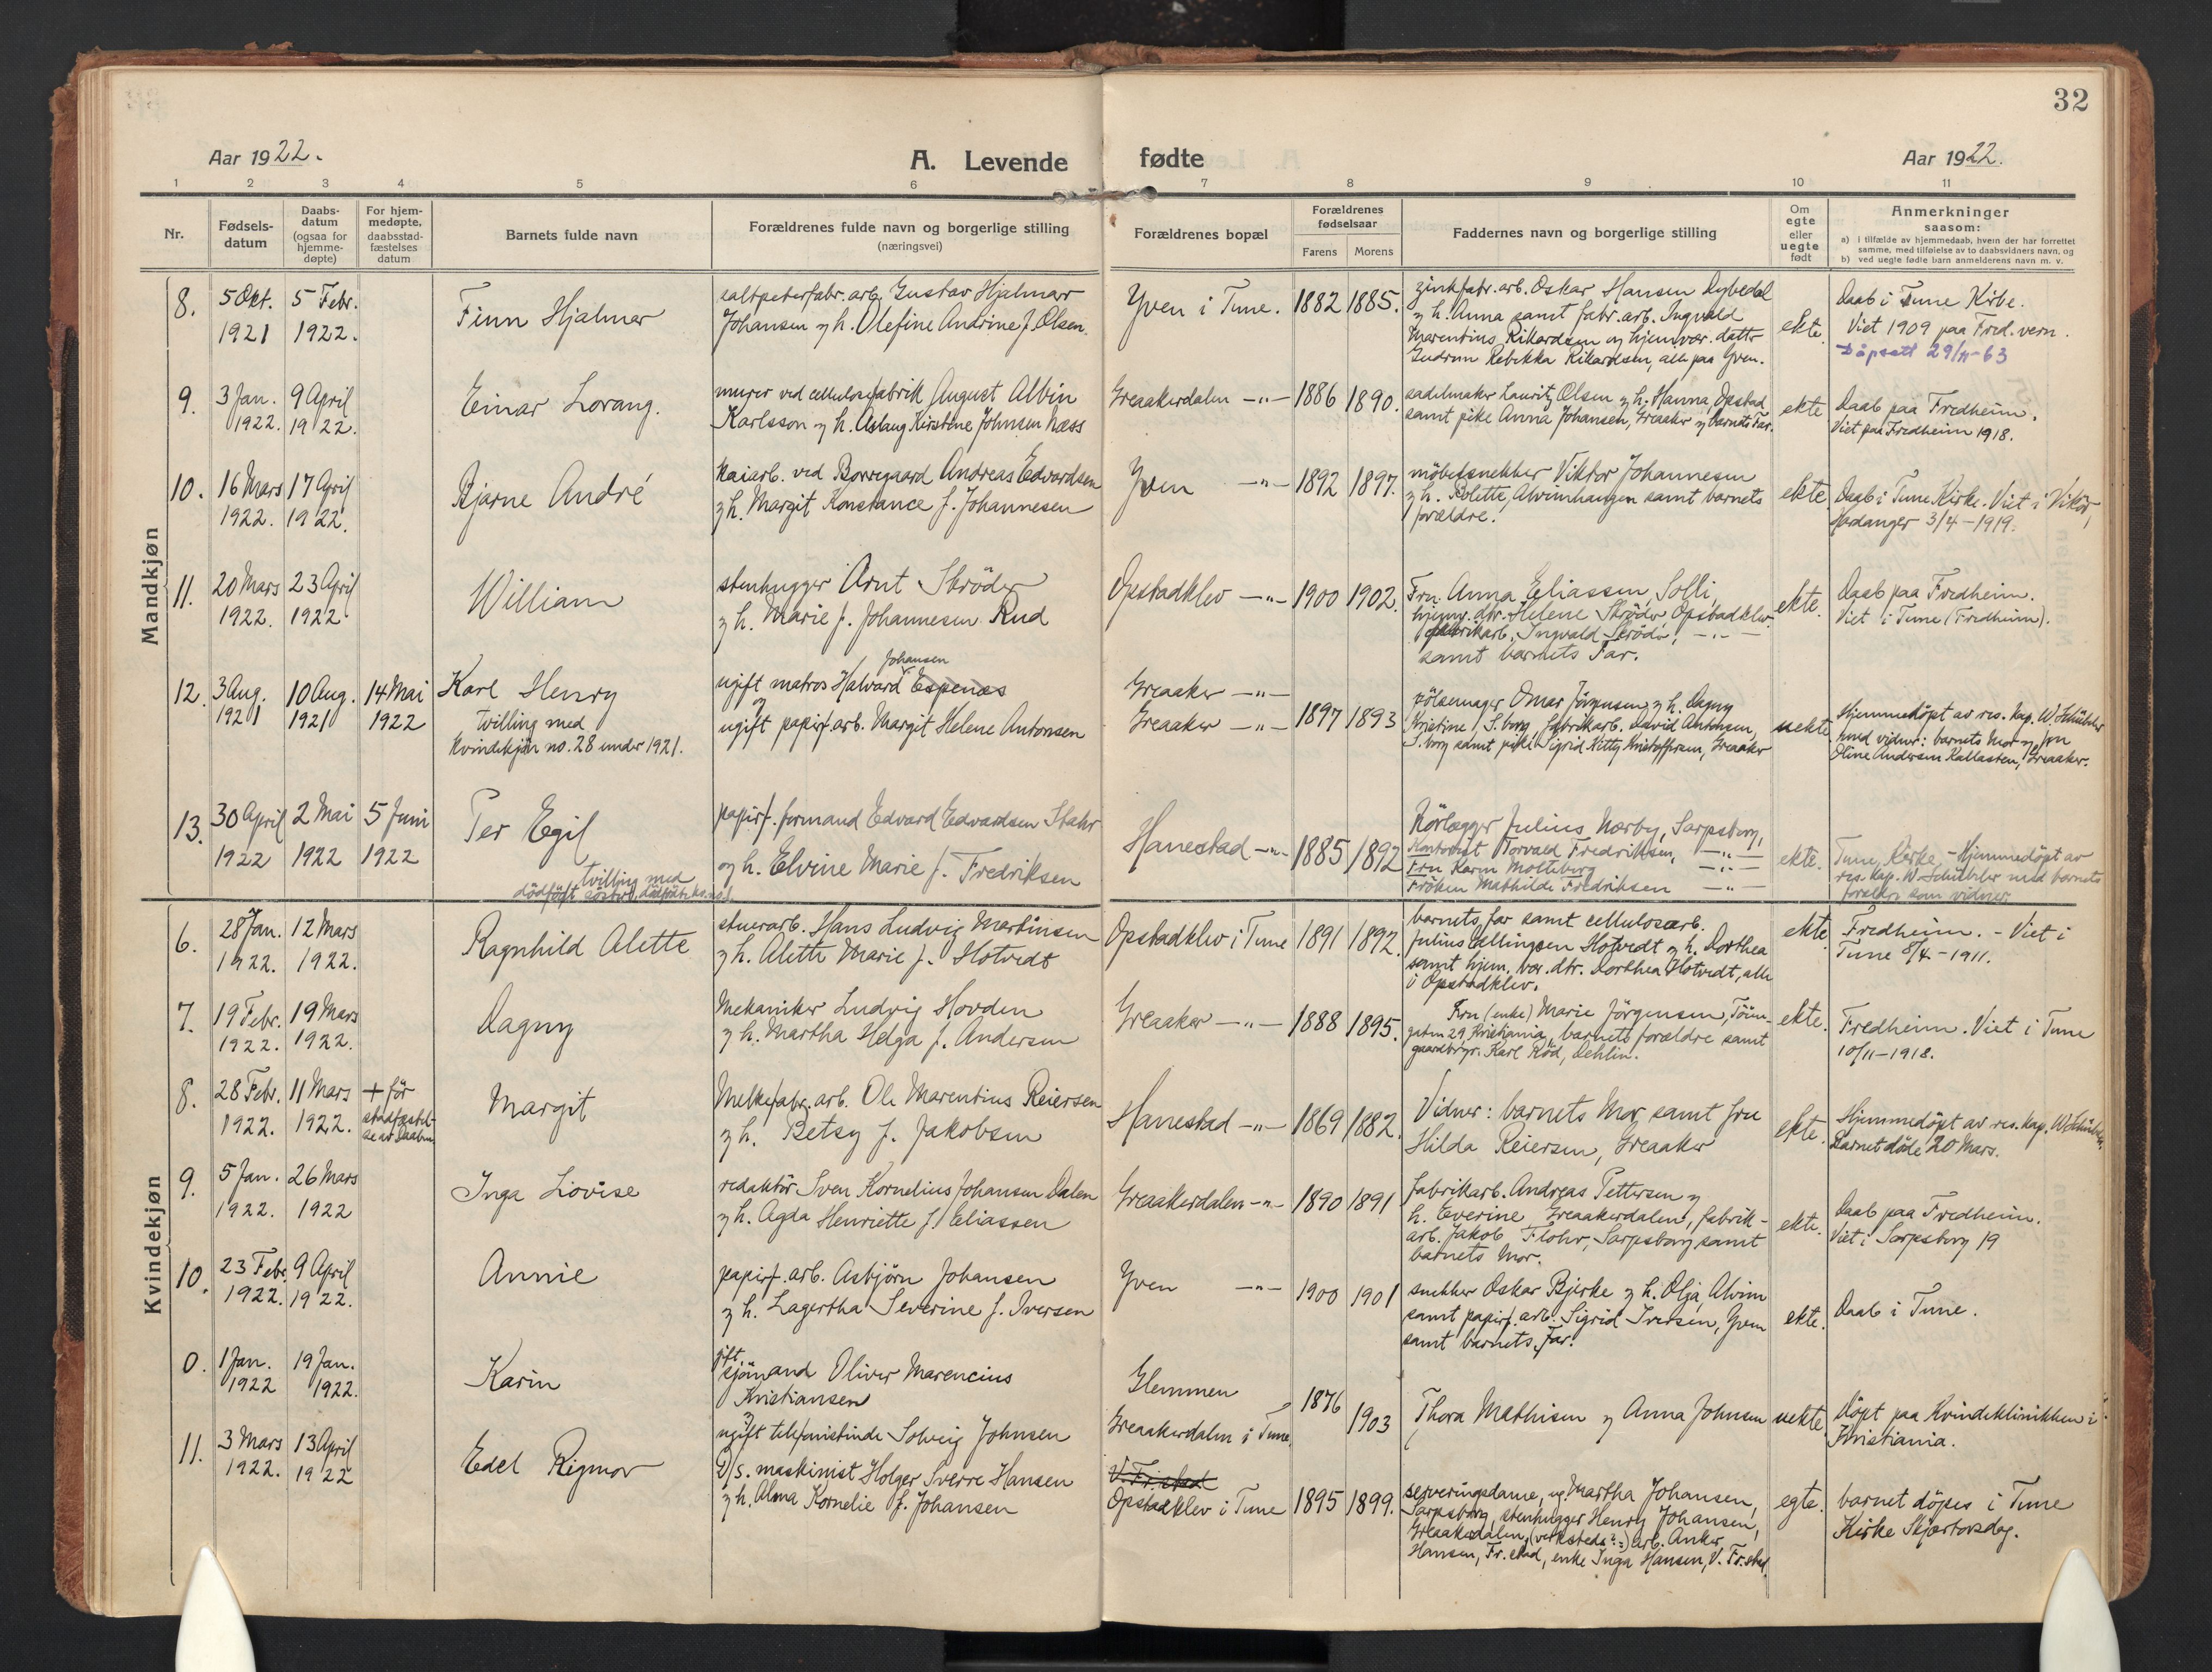 32
Aar 1922.
A. Levende fødte
Aar 1922.
1 2 3 4 5 6 7 8 9 10 11
Nr.
Fødsels-
datum
Daabs-
datum
(ogsaa for
hjemme-
døpte)
For hjem-
medøpte,
daabsstad-
fæstelses
datum
Barnets fulde navn
Forældrenes fulde navn og borgerlige stilling
(næringsvei)
Forældrenes bopæl
Forældrenes
fødselsaar
Farens Morens
Faddernes navn og borgerlige stilling
Om
egte
eller
uegte
født
Anmerkninger
saasom:
a) i tilfælde av hjemmedaab, hvem der har forrettet
samme, med tilføielse av to daabsvidners navn, og
b) ved uegte fødte barn anmelderens navn m. v.
Mandkjøn
8.
5 Okt.
1921
5 Febr.
1922.
Finn Hjalmar
saltpeterfabr. arb. Gustav Hjalmar
Johansen og h. Olefine Andrine f. Olsen.
Yven i Tune.
1882
1885.
zinkfabr. arb. Oskar Hansen Dybedal
og h. Anna samt fabr. arb. Ingvald
Marentius Rikardsen og hjemvær. datter
Gudrun Rebekka Rikardsen, alle paa Yven.
ekte
Daab i Tune Kirke.
Viet 1909 paa Fred.vern.
Dåpsatt 29/11-63
9.
3 Jan.
1922.
9 April
1922.
Einar Lorang.
murer ved cellulosefabrik August Albin
Karlsson og h. Aslaug Kirstine Johnsen Næss
Greaakerdalen -"-
1886
1890.
sadelmaker Lauritz Olsen og h. Hanna, Opstad
samt pike Anna Johansen, Greaaker og barnets Far.
ekte
Daab paa Fredheim.
Viet paa Fredheim 1918.
10.
16 Mars
1922.
17 April
1922.
Bjarne André
kaiarb. ved Borregaard Andreas Edvardsen
og h. Margit Konstance f. Johannesen
Yven -"-
1892
1897.
möbelsnekker Viktor Johannesen
og h. Bolette, Alvimhaugen samt barnets
forældre.
ekte
Daab i Tune Kirke. Viet i Vikör,
Hardanger 3/4-1919.
11.
20 Mars
1922.
23 April
1922.
William
stenhugger Arnt Skröder
og h. Marie f. Johannesen Rud
Opstadklev -"-
1900
1902.
Fru Anna Eliassen, Solli,
hjemv. dtr. Helene Skröder, Opstadklev
fabrikarb. Ingvald Skröder, -"-
samt barnets Far.
ekte.
Daab paa Fredheim.
Viet i Tune (Fredheim).
12.
3 Aug.
1921
10 Aug.
1921
14 Mai
1922
Karl Henry
Tvilling med
Kvindekjön no. 28 under 1921.
Johansen
ugift matros Halvard Espenæs
og
ugift papirf. arb. Margit Helene Antonsen
Greaaker -"-
Greaaker -"-
1897
1893
pölsemager Omar Jörgensen og h. Dagny
Kristine, S.borg, fabrikarb. David Antonsen,
S.borg samt pike Sigrid Kristoffersen, Greaaker
uekte
Hjemmedöpt av res. kap. W. Schübeler
med vidner: barnets Mor og fru
Oline Andersen Kallasten, Greaaker.
13.
30 April
1922
2 Mai
1922
5 Juni
1922
Per Egil
tvilling med
papirf. formand Edvard Edvardsen Stahr
og h. Elvine Marie f. Fredriksen
Hanestad -"-
1885
1892
Rörlægger Julius Nærby, Sarpsborg,
Kontorist Torvald Fredriksen, -"-
Fru Karen Molteberg -"-
Fröken Mathilde Fredriksen -"-
ekte.
Tune Kirke - Hjemmedöpt av
res. kap. W. Schübeler med barnets
forældre som vidner
Kvindekjøn
6.
28 Jan.
1922.
12 Mars
1922.
Ragnhild Alette
stuerarb. Hans Ludvig Martinsen
og h. Alette Marie f. Hotvedt
Opstadklev i Tune
1891
1892.
barnets far samt cellulosearb.
Julius Ellingsen Hotvedt og h. Dorthea
samt hjem. vær. dtr. Dorthea Hotvedt, alle
i Opstadklev.
ekte
Fredheim. - Viet i
Tune 8/4-1911.
7.
19 Febr.
1922.
19 Mars
1922.
Dagny
Mekaniker Ludvig Hovden
og h. Martha Helga f. Andersen
Greaaker -"-
1888
1895.
Fru (enke) Marie Jörgensen, Töien-
gaten 29, Kristiania, barnets forældre samt
gaardbryr. Karl Röd, Dehlin.
ekte.
Fredheim. Viet i Tune
10/11-1918.
8.
28 Febr.
1922.
11 Mars
1922.
+ för
stadfæstel-
se av daaben
Margit
Melkefabr. arb. Ole Marentius Reiersen
og h. Betsy f. Jakobsen
Hanestad -"-
1869
1882.
Vidner: barnets Mor samt fru
Hilda Reiersen, Greaaker
ekte.
Hjemmedöpt av res. kap. W. Schübeler.
Barnet döde 20 Mars.
9.
5 Jan.
1922.
26 Mars
1922
Inga Lovise
redaktör Sven Kornelius Johansen Dalen
og h. Agda Henriette f. Eliassen
Greaakerdalen -"-
1890
1891
fabrikarb. Andreas Pettersen og
h. Everine Greaakerdalen, fabrik-
arb. Jakob Flohr, Sarpsborg samt
barnets Mor.
ekte.
Daab paa Fredheim.
Viet i Sarpsborg 19
10.
23 Febr.
1922.
9 April
1922.
Annie
papirf. arb. Asbjörn Johansen
og h. Lagertha Severine f. Iversen
Yven -"-
1900
1901
snekker Oskar Bjerke og h. Olja, Alvim
samt papirf. arb. Sigrid Iversen, Yven
samt barnets Far.
ekte.
Daab i Tune.
0.
1 Jan.
1922
19 Jan.
1922.
Karin
gift
sjömand Oliver Marencius
Kristiansen
og
ugift telefonistinde Solveig Johnsen
Glemmen
Greaakerdalen i Tune.
1876
1903
Thora Mathisen og Anna Johnsen
uekte
Döpt paa Kvindeklinikken i
Kristiania.
11.
3 Mars
1922.
13 April
1922
Edel Rigmor
D/s. maskinist Holger Sverre Hansen
og h. Alma Kornelie f. Johansen
V. Fr.stad
Opstadklev i Tune
1895
1899.
serveringsdame, ug. Martha Johansen,
Sarpsborg, stenhugger Henry Johansen,
Greaakerdalen, (verksteds?) arb. Anker
Hansen, Fr.stad, enke Inga Hansen, V. Fr.stad.
egte.
barnet döpes i Tune
Kirke Skjærtorsdag.